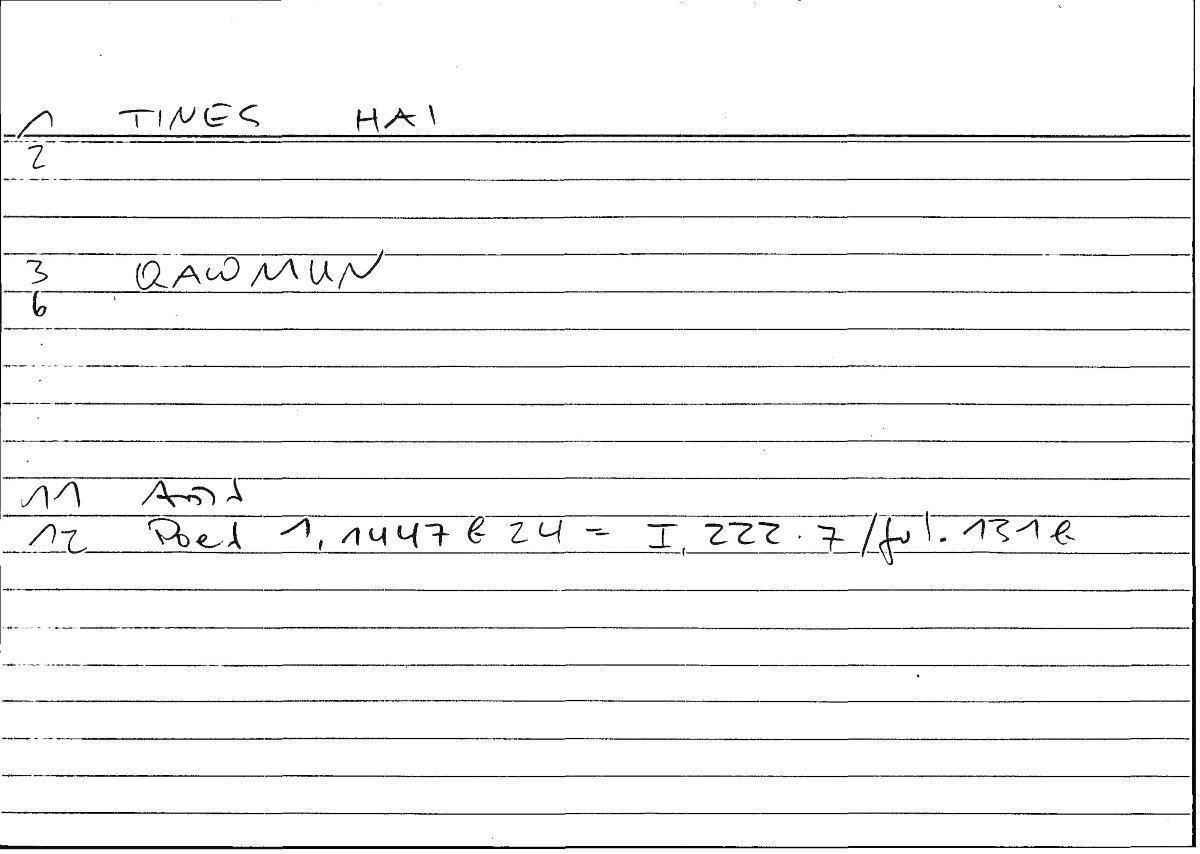 1 TINES HAI
2
3 QAWMUN
6
11
12 Poed 1,1447 b 24 = I, 222.7/fol. 131 b